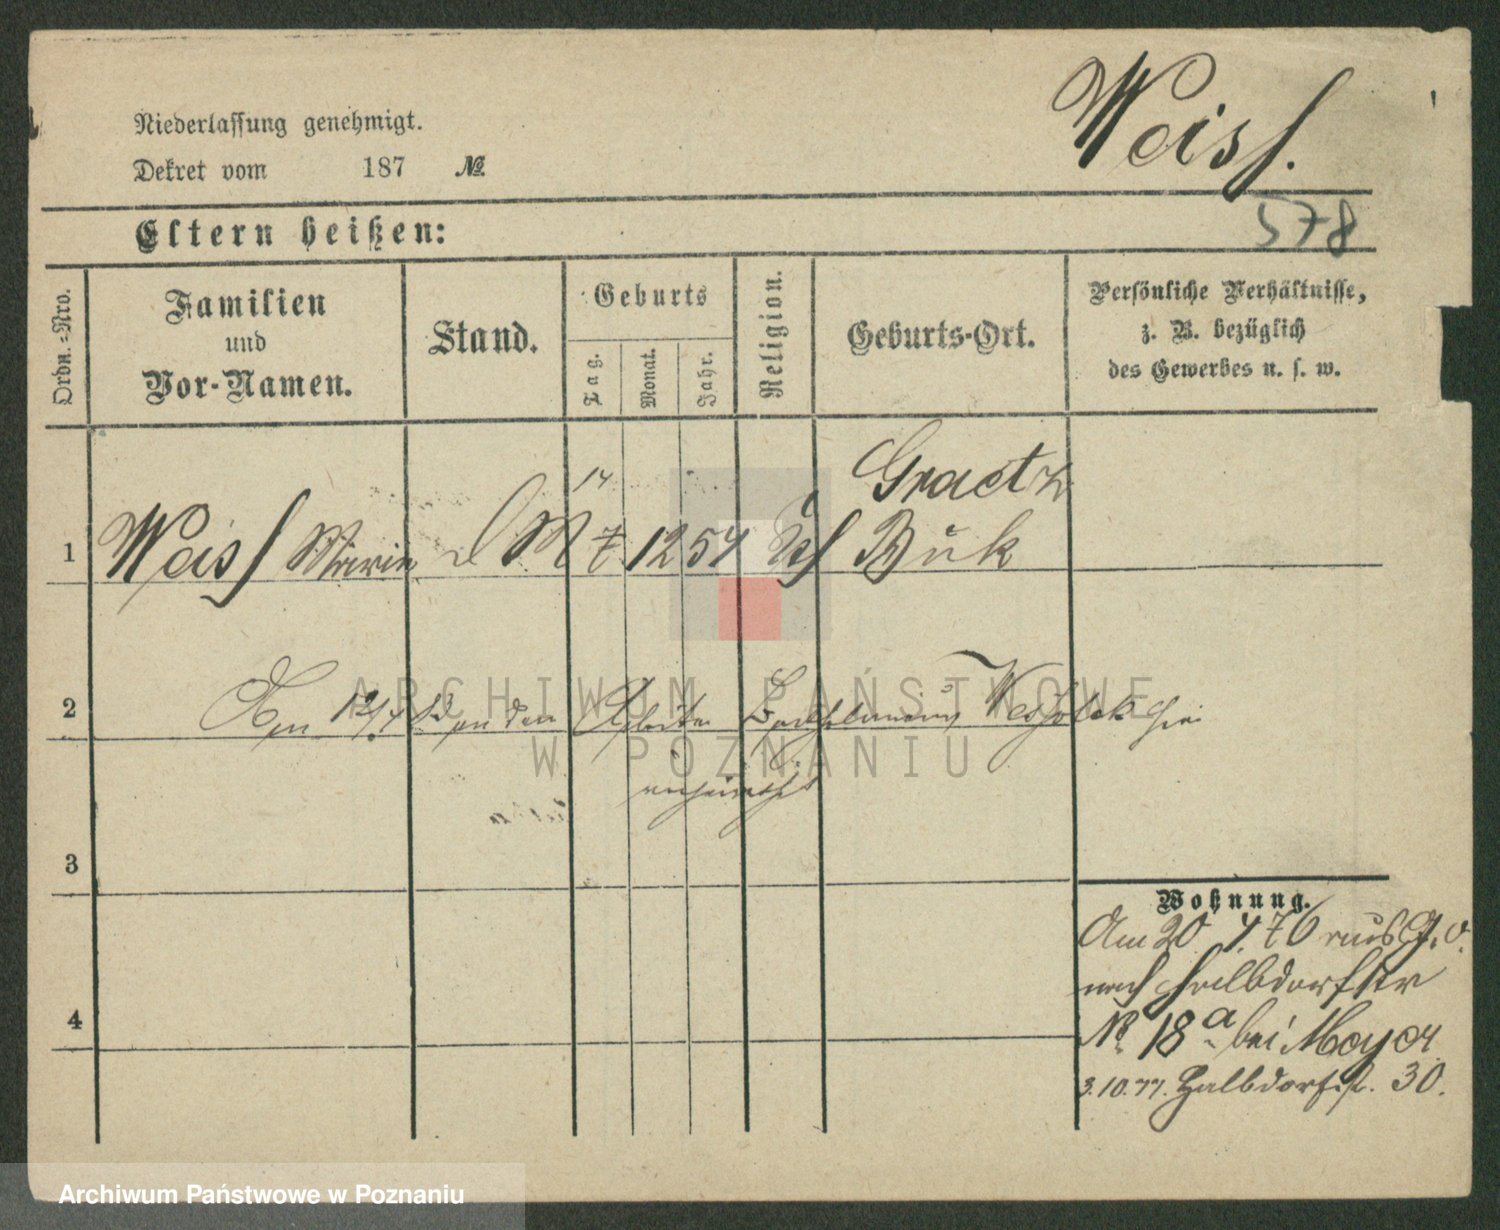 Weiss.
Niederlassung genehmigt.
Dekret vom 187 №
578
Eltern heißen:
Ordn.-Nro.
Familien
und
Vor-Namen.
Stand.
Geburts
Tag.
Monat.
Jahr.
Religion.
Geburts-Ort.
Persönliche Verhältnisse,
z. B. bezüglich
des Gewerbes u. s. w.
14
Graetz
1 Weiss Marie d M 7 12 54 Buk
2 den Arbeiter
verheirathet
3
Wohnung.
Am 20 4 76 aus
nach Halbdorfstr
4
№ 18 a bei Meyer
3.10.77. Halbdorfst. 30.
ARCHIWUM PAŃSTWOWE
W POZNANIU
Archiwum Państwowe w Poznaniu